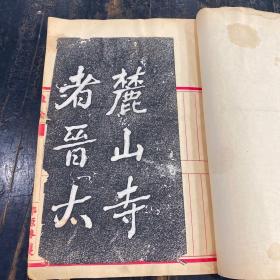 麓山寺
者晋太